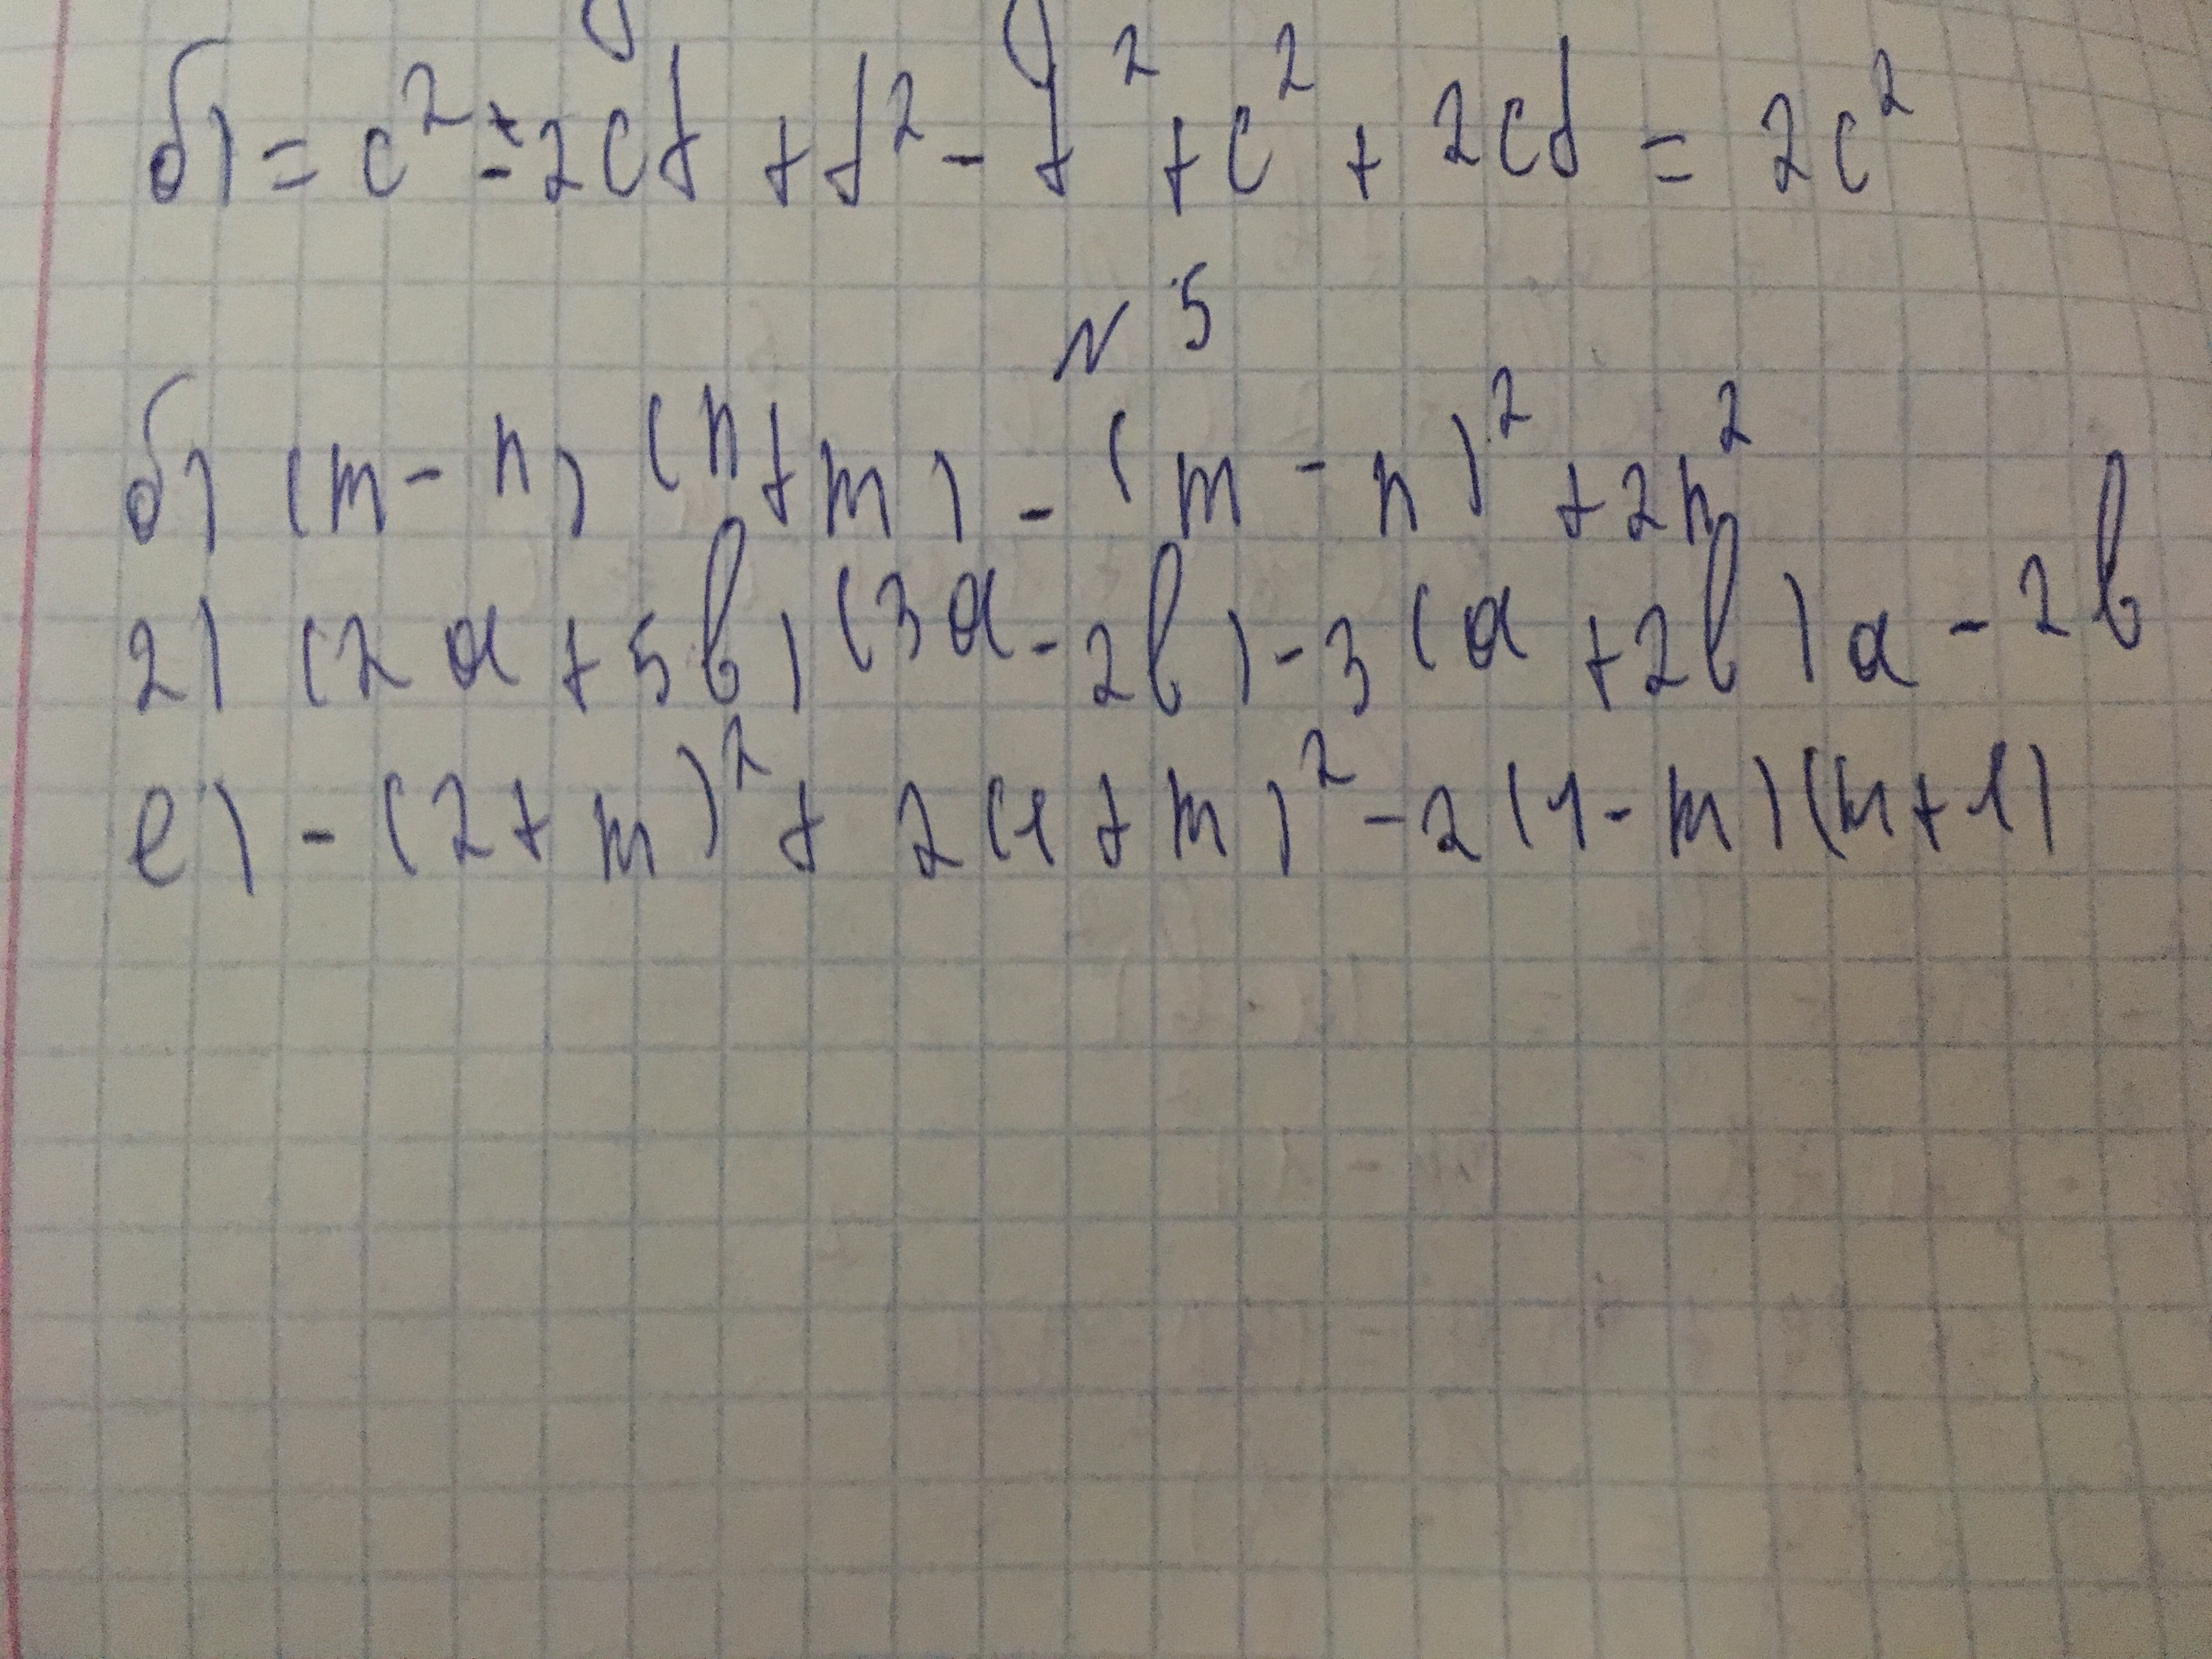 б) = c² ± 2cd + d² - d² + c² + 2cd = 2c²
№ 5
б) (m - n) (n + m) - (m - n)² + 2n²
г) (2a + 5b) (3a - 2b) - 3 (a + 2b) a - 2b
е) - (2 + m)² + 2(1 + m)² - 2(1 - m)(m + 1)